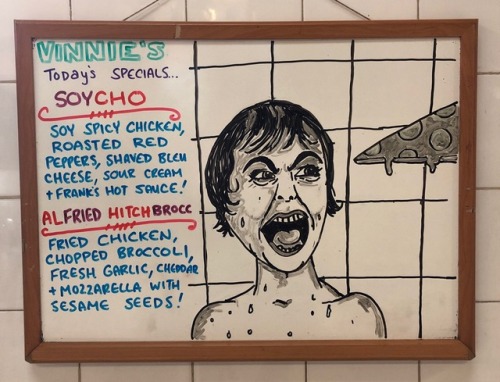 VINNIE'S
TODAY'S SPECIALS...
SOYCHO
SOY SPICY CHICKEN,
ROASTED RED
PEPPERS, SHAVED BLEU
CHEESE, SOUR CREAM
+ FRANK'S HOT SAUCE!
ALFRIED HITCHBROCC
FRIED CHICKEN,
CHOPPED BROCCOLI,
FRESH GARLIC, CHEDDAR
+ MOZZARELLA WITH
SESAME SEEDS!